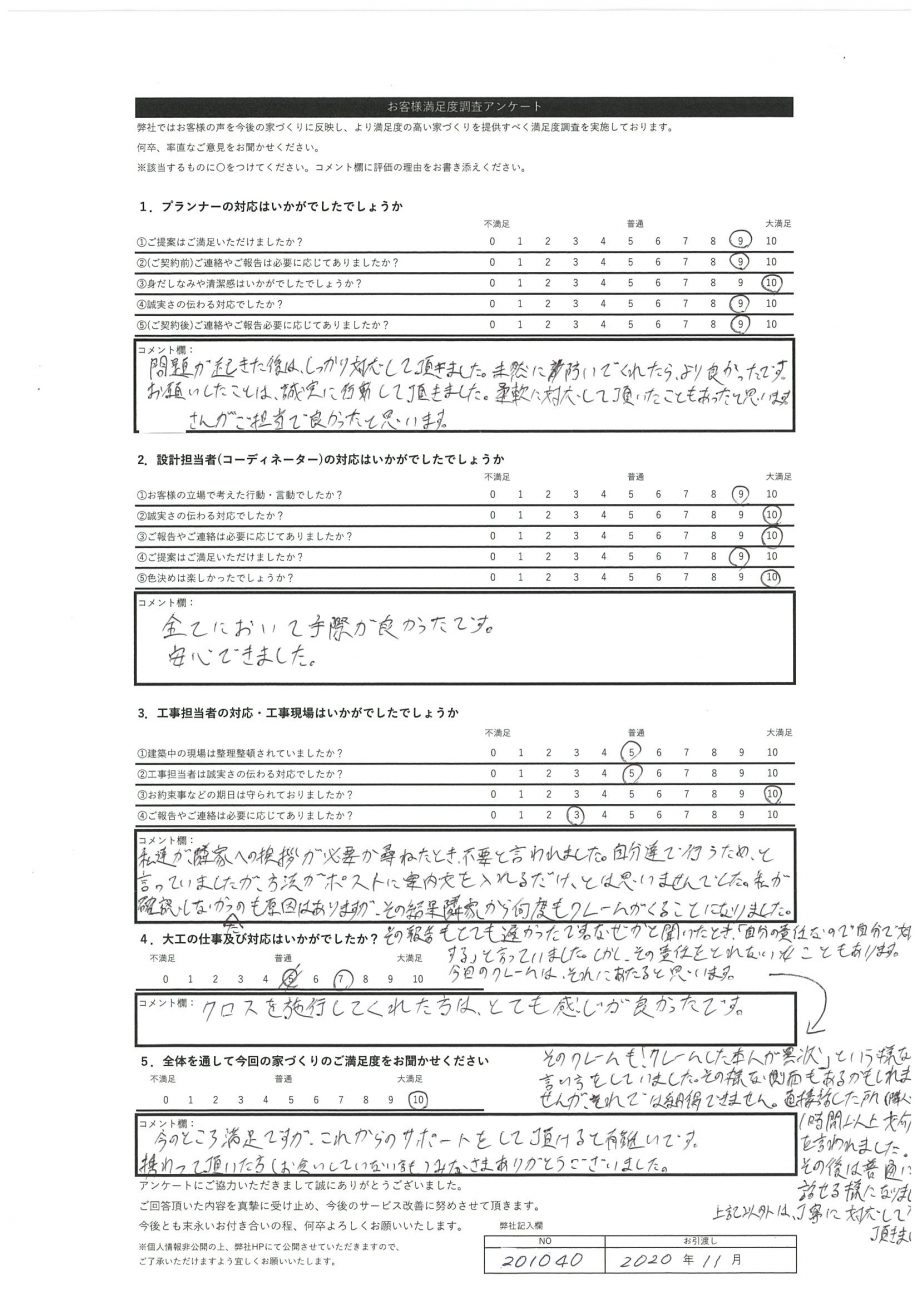 お客様満足度調査アンケート
弊社ではお客様の声を今後の家づくりに反映し、より満足度の高い家づくりを提供すべく満足度調査を実施しております。
何卒、率直なご意見をお聞かせください。
※該当するものに〇をつけてください。コメント欄に評価の理由をお書き添えください。
1．プランナーの対応はいかがでしたでしょうか
不満足 普通 大満足
①ご提案はご満足いただけましたか？ 0 1 2 3 4 5 6 7 8 9 10
②(ご契約前)ご連絡やご報告は必要に応じてありましたか？ 0 1 2 3 4 5 6 7 8 9 10
③身だしなみや清潔感はいかがでしたでしょうか？ 0 1 2 3 4 5 6 7 8 9 10
④誠実さの伝わる対応でしたか？ 0 1 2 3 4 5 6 7 8 9 10
⑤(ご契約後)ご連絡やご報告必要に応じてありましたか？ 0 1 2 3 4 5 6 7 8 9 10
コメント欄：
問題が起きた後は、しっかり対応して頂きました。未然に防いでくれたら、より良かったです。
お願いしたことは、誠実に行動して頂きました。柔軟に対応して頂いたこともあったと思います。
さんがご担当で良かったと思います。
2．設計担当者(コーディネーター)の対応はいかがでしたでしょうか
不満足 普通 大満足
①お客様の立場で考えた行動・言動でしたか？ 0 1 2 3 4 5 6 7 8 9 10
②誠実さの伝わる対応でしたか？ 0 1 2 3 4 5 6 7 8 9 10
③ご報告やご連絡は必要に応じてありましたか？ 0 1 2 3 4 5 6 7 8 9 10
④ご提案はご満足いただけましたか？ 0 1 2 3 4 5 6 7 8 9 10
⑤色決めは楽しかったでしょうか？ 0 1 2 3 4 5 6 7 8 9 10
コメント欄：
全てにおいて手際が良かったです。
安心できました。
3．工事担当者の対応・工事現場はいかがでしたでしょうか
不満足 普通 大満足
①建築中の現場は整理整頓されていましたか？ 0 1 2 3 4 5 6 7 8 9 10
②工事担当者は誠実さの伝わる対応でしたか？ 0 1 2 3 4 5 6 7 8 9 10
③お約束事などの期日は守られておりましたか？ 0 1 2 3 4 5 6 7 8 9 10
④ご報告やご連絡は必要に応じてありましたか？ 0 1 2 3 4 5 6 7 8 9 10
コメント欄：
私達が、隣家への挨拶が必要か尋ねたとき、不要と言われました。自分達で行うため、と
言っていましたが、方法がポストに案内文を入れるだけ、とは思いませんでした。私が
確認しなかったのも原因はありますが、その結果隣家から何度もクレームがくることになりました。
4．大工の仕事及び対応はいかがでしたか？
その報告もとても遅かったです。なぜかと聞いたとき、「自分の責任なので自分で対
する」と言っていました。しかし、その責任をとれないこともあります。
今回のクレームは、それにあたると思います。
不満足 普通 大満足
0 1 2 3 4 5 6 7 8 9 10
コメント欄：
クロスを施行してくれた方は、とても感じが良かったです。
5．全体を通して今回の家づくりのご満足度をお聞かせください
不満足 普通 大満足
0 1 2 3 4 5 6 7 8 9 10
そのクレームも「クレームした本人が異状」という様な
言い方をしていました。その様な側面もあるかもしれま
せんが、それでは納得できません。直接話した所
1時間以上
を言われました。
その後は普通に
話せる様になりまし
上記以外は、丁寧に対応して
頂きまし
コメント欄：
今のところ満足ですが、これからのサポートをして頂けると有難いです。
携わって頂いた方(お会いしていない方も)みなさまありがとうございました。
アンケートにご協力いただきまして誠にありがとうございました。
ご回答頂いた内容を真摯に受け止め、今後のサービス改善に努めさせて頂きます。
今後とも末永いお付き合いの程、何卒よろしくお願いいたします。
※個人情報非公開の上、弊社HPにて公開させていただきますので、
ご了承いただけますよう宜しくお願いいたします。
弊社記入欄
NO お引渡し
201040 2020 年 11 月